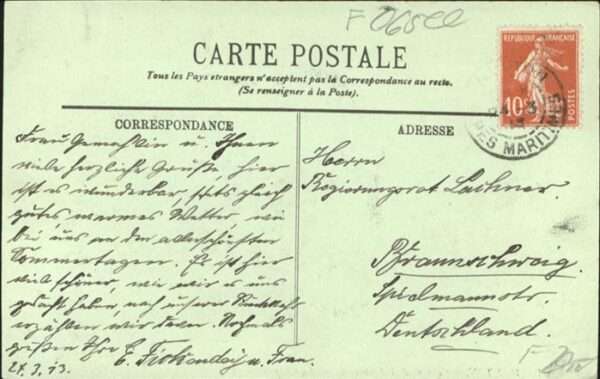 F 065cc
CARTE POSTALE
Tous les Pays etrangers n'acceptent pas la Correspondance au recto.
(Se renseigner à la Poste).
REPUBLIQUE FRANÇAISE
10c
POSTES
PES MARITIMES
CORRESPONDANCE
Frau Gemahlin u. Ihnen
viele herzliche Grüße. hier
ist es wunderbar, stets gleich
gutes warmes Wetter, wie
bei uns an den allerschönsten
Sommertagen. Es ist hier
viel schöner, wie wir es uns
gedacht haben, nach unserer Rückkehr
erzählen wir davon. Nochmals
grüßen Ihre E. u. Frau.
27.3.13.
ADRESSE
Herrn
Regierungsrat Lachner.
Braunschweig.
Spielmannstr.
Deutschland.